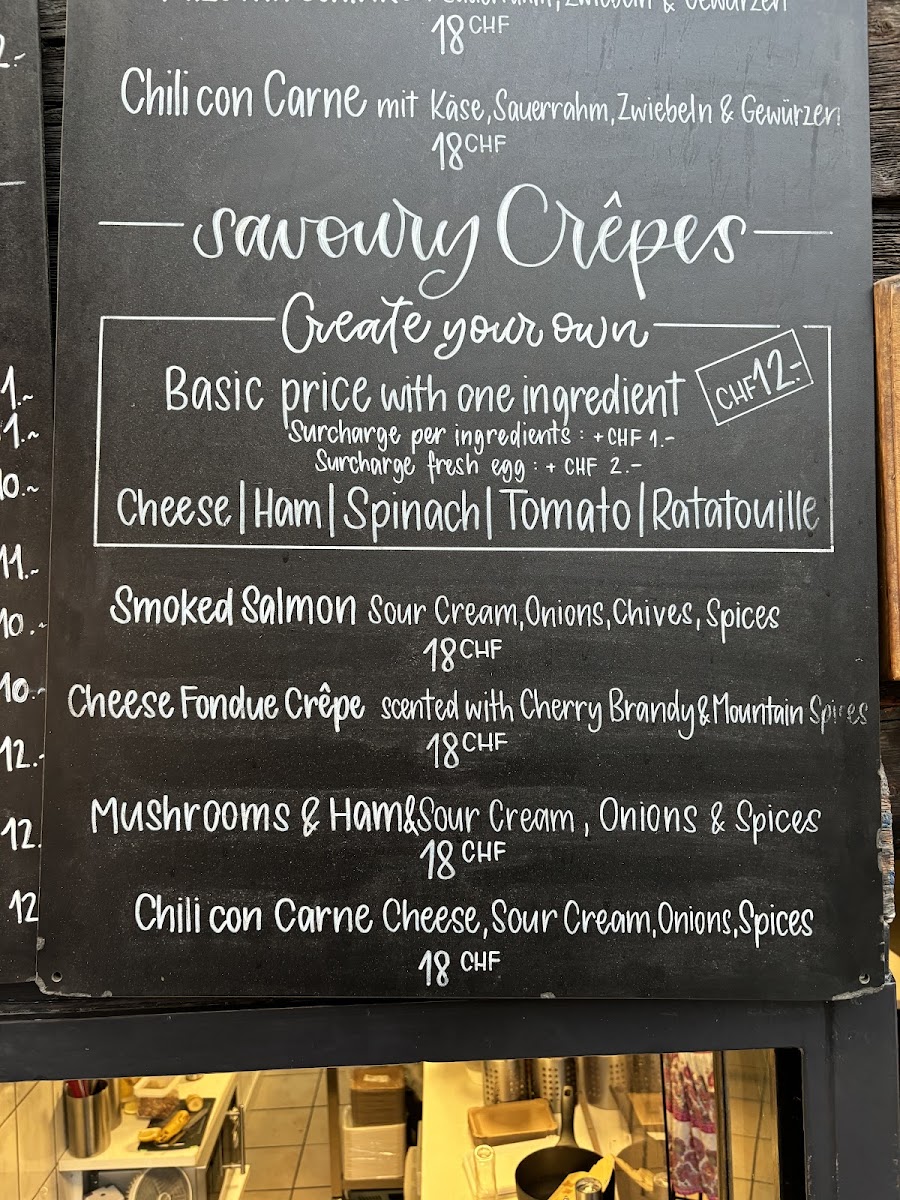 Sauerrahm, Zwiebeln & Gewürzen
18 CHF
Chili con Carne mit Käse, Sauerrahm, Zwiebeln & Gewürzen
18 CHF
savoury Crêpes
Create your own
Basic price with one ingredient CHF 12.-
Surcharge per ingredients : + CHF 1.-
Surcharge fresh egg : + CHF 2.-
Cheese | Ham | Spinach | Tomato | Ratatouille
Smoked Salmon Sour Cream, Onions, Chives, Spices
18 CHF
Cheese Fondue Crêpe scented with Cherry Brandy & Mountain Spices
18 CHF
Mushrooms & Ham & Sour Cream, Onions & Spices
18 CHF
Chili con Carne Cheese, Sour Cream, Onions, Spices
18 CHF
2.-
1.~
1.~
10.~
11.-
10.-
10.-
12.-
12.
12